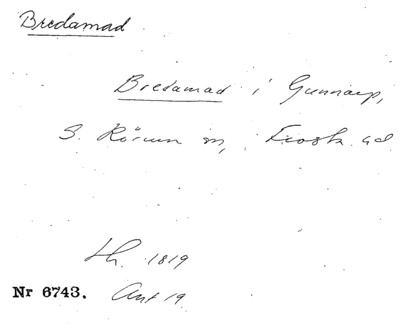 Bredamad
Bredamad i Gunnarp,
S. Rörum sn, Frosta hd
Lh. 1819
Nr 6743. Ant 19